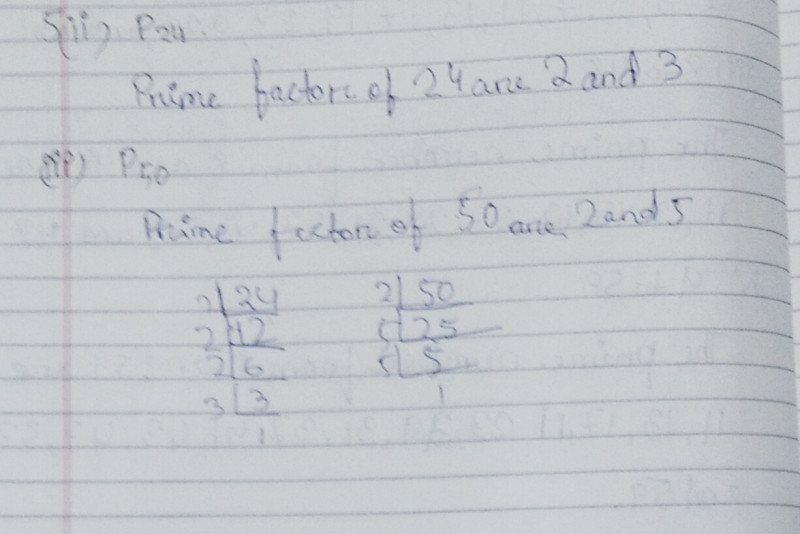 5(ii) P24.
Prime factors of 24 are 2 and 3
(iii) P50
Prime factors of 50 are 2 and 5
2 24 2 50
2 12 5 25
2 6 5 5
3 3 1
1